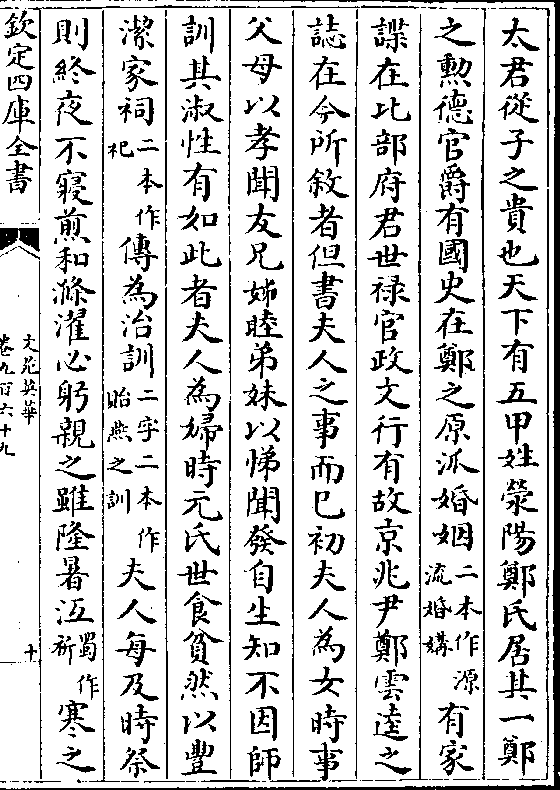 太君從子之貴也天下有五甲姓滎陽鄭氏居其一鄭
之勲德官爵有國史在鄭之原派婚姻二本作源流婚媾有家
諜在比部府君世禄官政文行有故京兆尹鄭雲逵之
誌在今所敘者但書夫人之事而已初夫人為女時事
父母以孝聞友兄姊睦弟妹以悌聞發自生知不因師
訓其淑性有如此者夫人為婦時元氏世食貧然以豐
潔家祠二本作祀傳為治訓二字二本作貽燕之訓夫人每及時祭
則終夜不寢煎和滌濯必躬親之雖隆暑沍蜀作祈寒之
欽定四庫全書
文苑英華
卷九百六十九
十